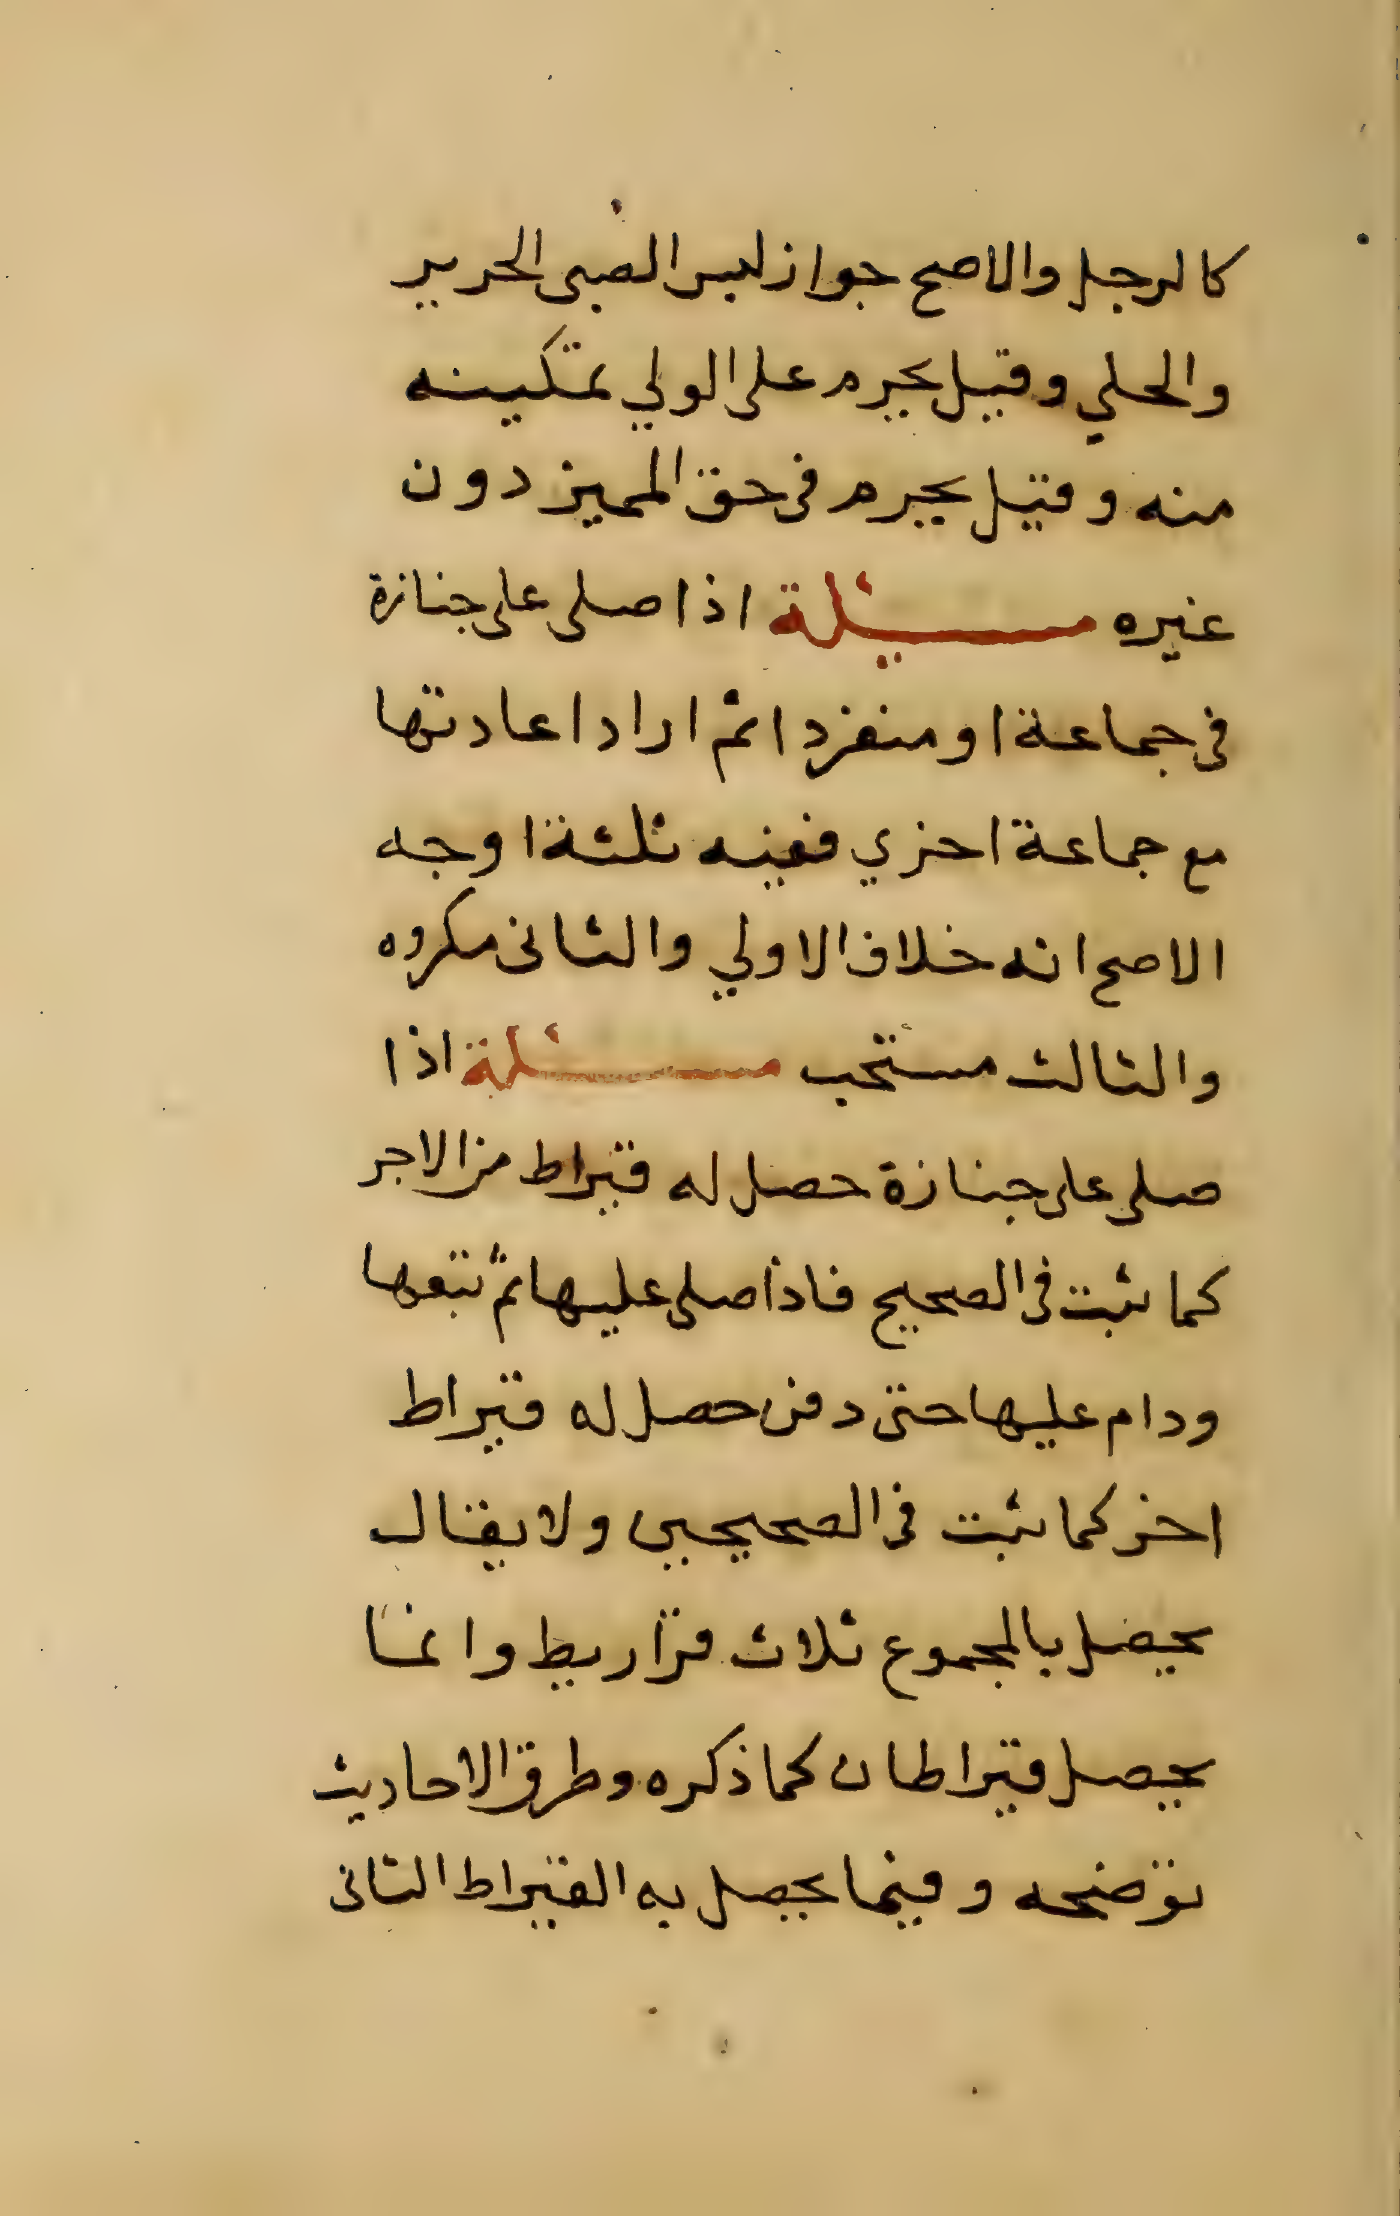 كالرجل والاصح جواز لبس الصبى الحرير
والحلي وقيل يحرم على الولي تمكينه
منه وقيل يحرم فى حق المميز دون
غيره مسئلة اذا صلى على جنازة
فى جماعة او منفردا ثم اراد اعادتها
مع جماعة اخري ففيه ثلثة اوجه
الاصح انه خلاف الاولي والثانى مكروه
والثالث مستحب مسئلة اذا
صلى على جنازة حصل له قيراط من الاجر
كما ثبت فى الصحيح فاذا صلى عليها ثم تبعها
ودام عليها حتى دفن حصل له قيراط
اخر كما ثبت فى الصحيحين ولا يقال
يحصل بالمجموع ثلاث قراريط وانما
يحصل قيراطان كما ذكره وطرق الاحاديث
توضحه وفيما يحصل به القيراط الثانى